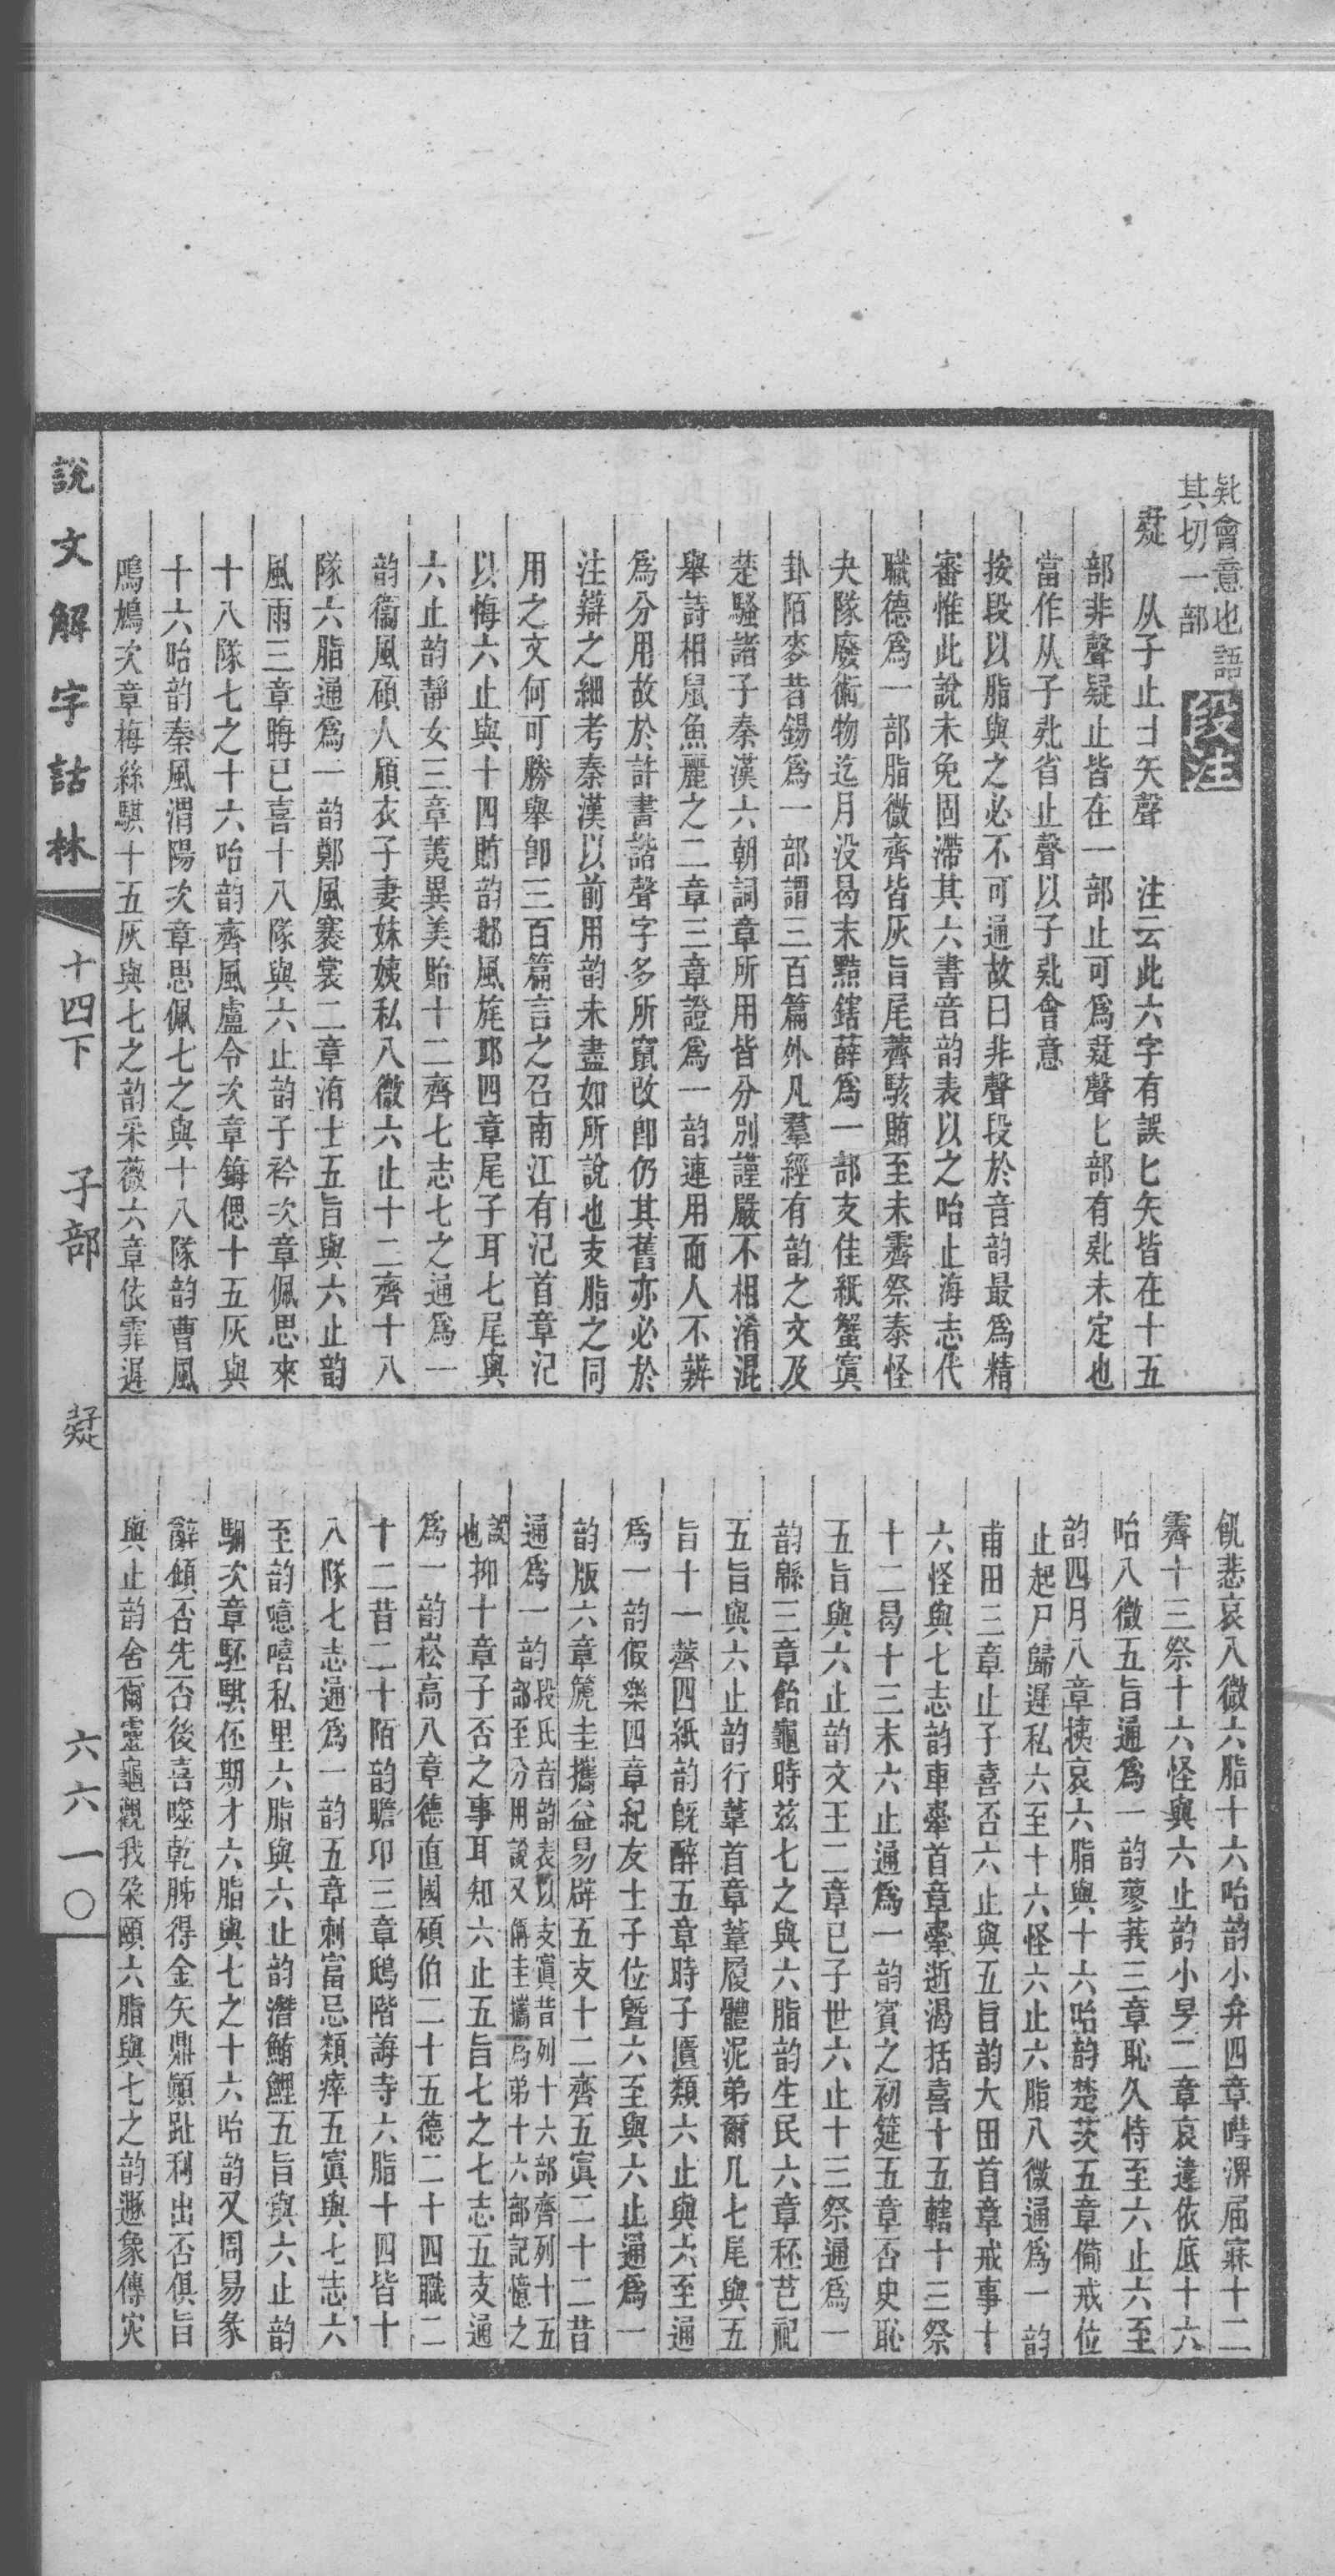 𣬉會意也語
其切一部
段注
疑　从子止匕矢聲　注云此六字有誤匕矢皆在十五
部非聲疑止皆在一部止可爲疑聲匕部有𣬉未定也
當作从子𣬉省止聲以子𣬉會意
按段以脂與之必不可通故曰非聲段於音韵最爲精
審惟此說未免固滯其六書音韵表以之咍止海志代
職德爲一部脂微齊皆灰旨尾薺駭賄至未霽祭泰怪
夬隊廢術物迄月没曷末黠鎋薛爲一部支佳紙蟹寘
卦陌麥昔錫爲一部謂三百篇外凡羣經有韵之文及
楚騷諸子秦漢六朝詞章所用皆分別謹嚴不相淆混
舉詩相鼠魚麗之二章三章證爲一韵連用而人不辨
爲分用故於許書諧聲字多所竄改卽仍其舊亦必於
注辯之細考秦漢以前用韵未盡如所說也支脂之同
用之文何可勝舉卽三百篇言之召南江有汜首章汜
以悔六止與十四賄韵邶風旄邱四章尾子耳七尾與
六止韵靜女三章荑異美貽十二齊七志七之通爲一
韵衞風碩人頎衣子妻妹姨私八微六止十二齊十八
隊六脂通爲一韵鄭風褰裳二章洧士五旨與六止韵
風雨三章晦已喜十八隊與六止韵子衿次章佩思來
十八隊七之十六咍韵齊風盧令次章鋂偲十五灰與
十六咍韵秦風渭陽次章思佩七之與十八隊韵曹風
鳲鳩次章梅絲騏十五灰與七之韵采薇六章依霏遲
飢悲哀八微六脂十六咍韵小弁四章嘒淠屆寐十二
霽十三祭十六怪與六止韵小旻二章哀違依底十六
咍八微五旨通爲一韵蓼莪三章恥久恃至六止六至
韵四月八章桋哀六脂與十六咍韵楚茨五章備戒位
止起尸歸遲私六至十六怪六止六脂八微通爲一韵
甫田三章止子喜否六止與五旨韵大田首章戒事十
六怪與七志韵車舝首章舝逝渴括喜十五轄十三祭
十二曷十三末六止通爲一韵賓之初筵五章否史恥
五旨與六止韵文王二章已子世六止十三祭通爲一
韵緜三章飴龜時茲七之與六脂韵生民六章秠芑祀
五旨與六止韵行葦首章葦履體泥弟爾几七尾與五
旨十一薺四紙韵旣醉五章時子匱類六止與六至通
爲一韵假樂四章紀友士子位曁六至與六止通爲一
韵版六章箎圭攜益易辟五支十二齊五寘二十二昔
通爲一韵段氏音韵表以支寘昔列十六部齊列十五
部至分用說又偁圭攜爲弟十六部記憶之
誤也抑十章子否之事耳知六止五旨七之七志五支通
爲一韵崧高八章德直國碩伯二十五德二十四職二
十二昔二十陌韵瞻卬三章鴟階誨寺六脂十四皆十
八隊七志通爲一韵五章刺富忌類瘁五寘與七志六
至韵噫嘻私里六脂與六止韵潛鮪鯉五旨與六止韵
駉次章駓騏伾期才六脂與七之十六咍韵又周易彖
辭傾否先否後喜噬乾胏得金矢鼎顚趾利出否俱旨
與止韵舍爾靈龜觀我朶頤六脂與七之韵遯象傳災
說文解字詁林
十四下
子部
疑
六六一〇